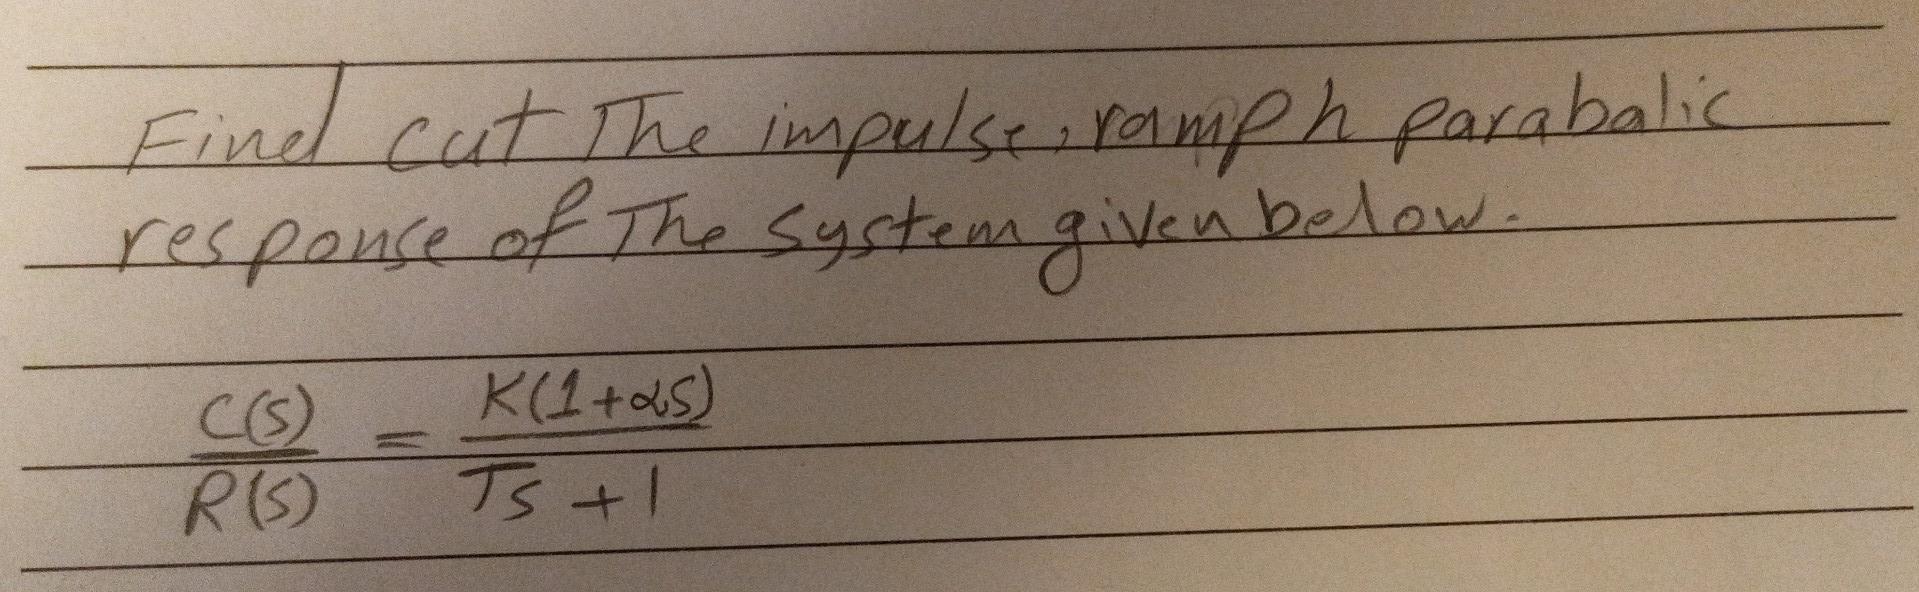 Find cut The impulse, ramph parabalic
response of The system given below.
C(S) / R(S) = K(1+αS) / TS + 1